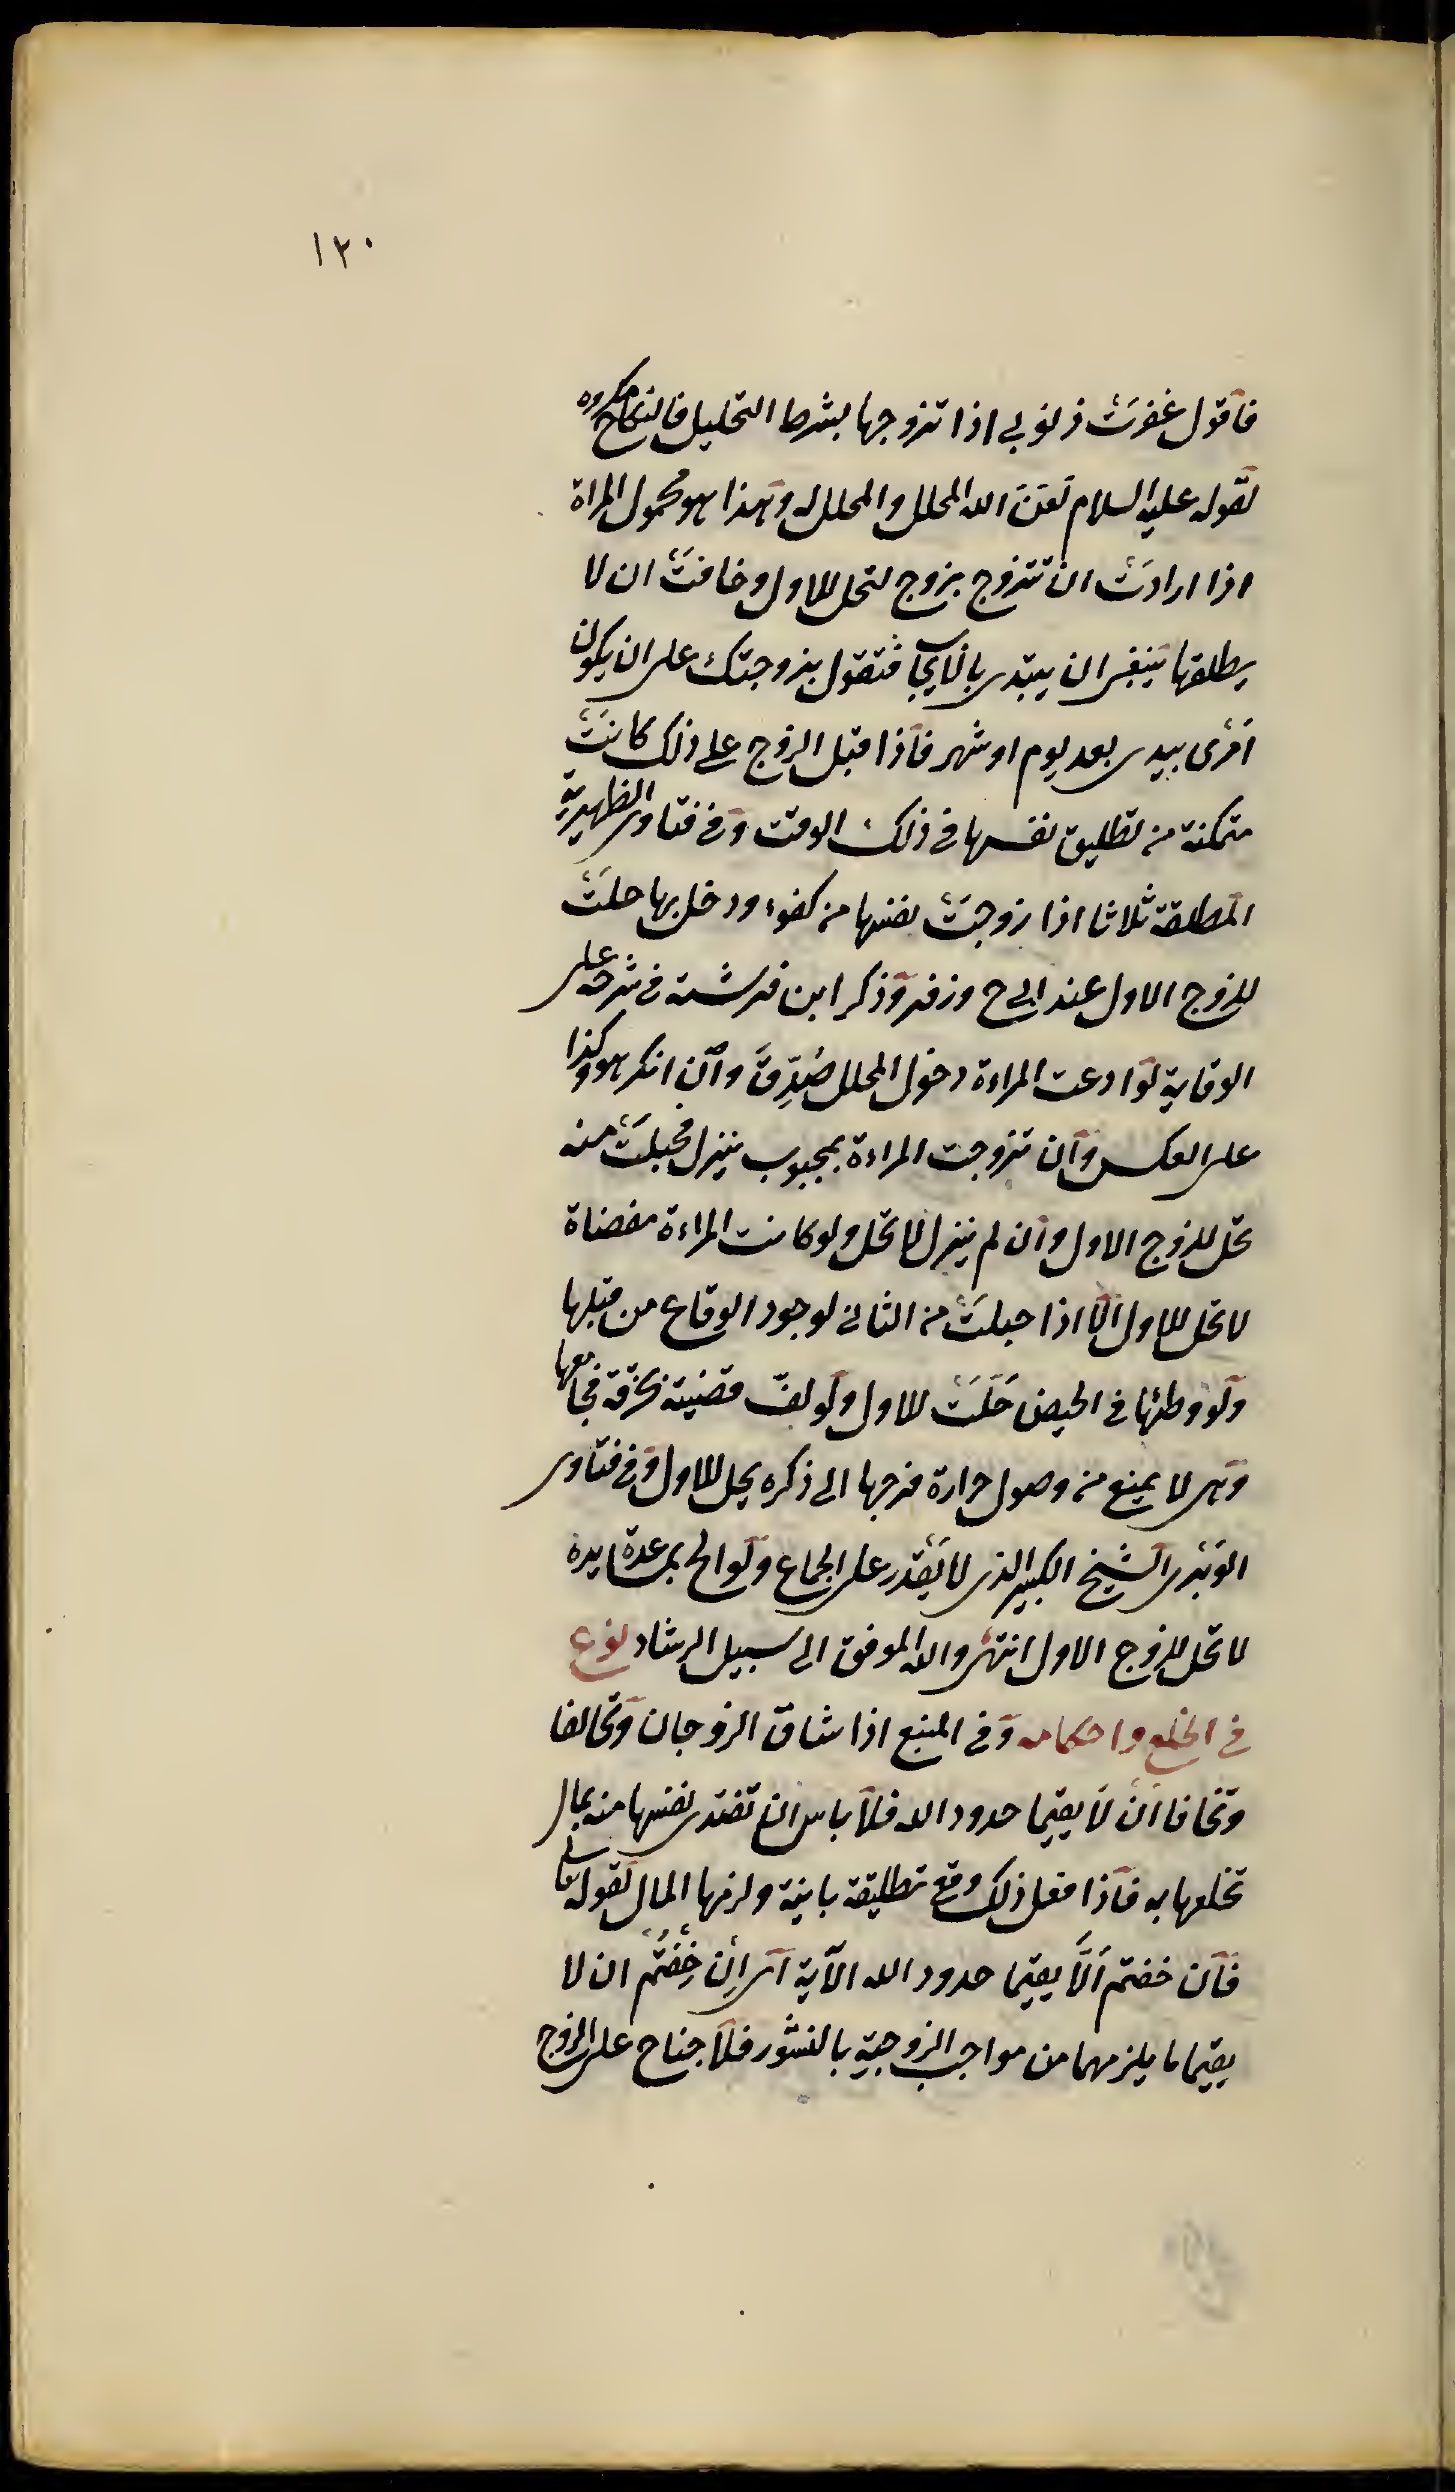 ١٣٠
فاقول غفرت ذنوبي اذا تزوجها بشرط التحليل فالنكاح مكروه
لقوله عليه السلام لعن الله المحلل والمحلل له وهذا هو محمول المراة
اذا ارادت ان تتزوج بزوج لتحل للاول وخافت ان لا
يطلقها ينبغى ان يبتدى بالايجاب فتقول بزوجتك على ان يكون
امرى بيدى بعد يوم او شهر فاذا قبل الزوج على ذلك كانت
متمكنة من تطليق نفسها في ذلك الوقت وفي فتاوى الظهيرية
المطلقة ثلاثا اذا زوجت نفسها من كفوء ودخل بها حلت
للزوج الاول عند ابي ح وزفر وذكر ابن فرشته في شرحه على
الوقاية لو ادعت المراءة دخول المحلل صُدِّقَ وان انكر هو وكذا
على العكس وان تزوجت المراءة بمجبوب ينزل فحبلت منه
تحل للزوج الاول وان لم ينزل لا تحل ولو كانت المراءة مفضاة
لا تحل للاول الّا اذا حبلت من الثاني لوجود الوقاع من قبلها
ولو وطئها في الحيض حَلّت للاول ولو لفّ قضيبه بخرقة فجامعها
وهى لا يمنع من وصول حرارة فرجها الى ذكره يحل للاول وفي فتاوى
الوبرى الشيخ الكبير الذى لا يقدر على الجماع ولو اولج بمساعدة يده
لا تحل للزوج الاول انتهى والله الموفق الى سبيل الرشاد نوع
في الخلع واحكامه وفي المنبع اذا شاق الزوجان وتخالفا
وتخافا ان لا يقيما حدود الله فلا باس ان تفتدى نفسها منه بمال
تخلعها به فاذا فعل ذلك وقع تطليقة باينة ولزمها المال لقوله تعالى
فان خفتم اَلَّا يقيما حدود الله الآية اى اِن خِفْتُم ان لا
يقيما ما يلزمهما من مواجب الزوجية بالنشور فلا جناح على الزوج